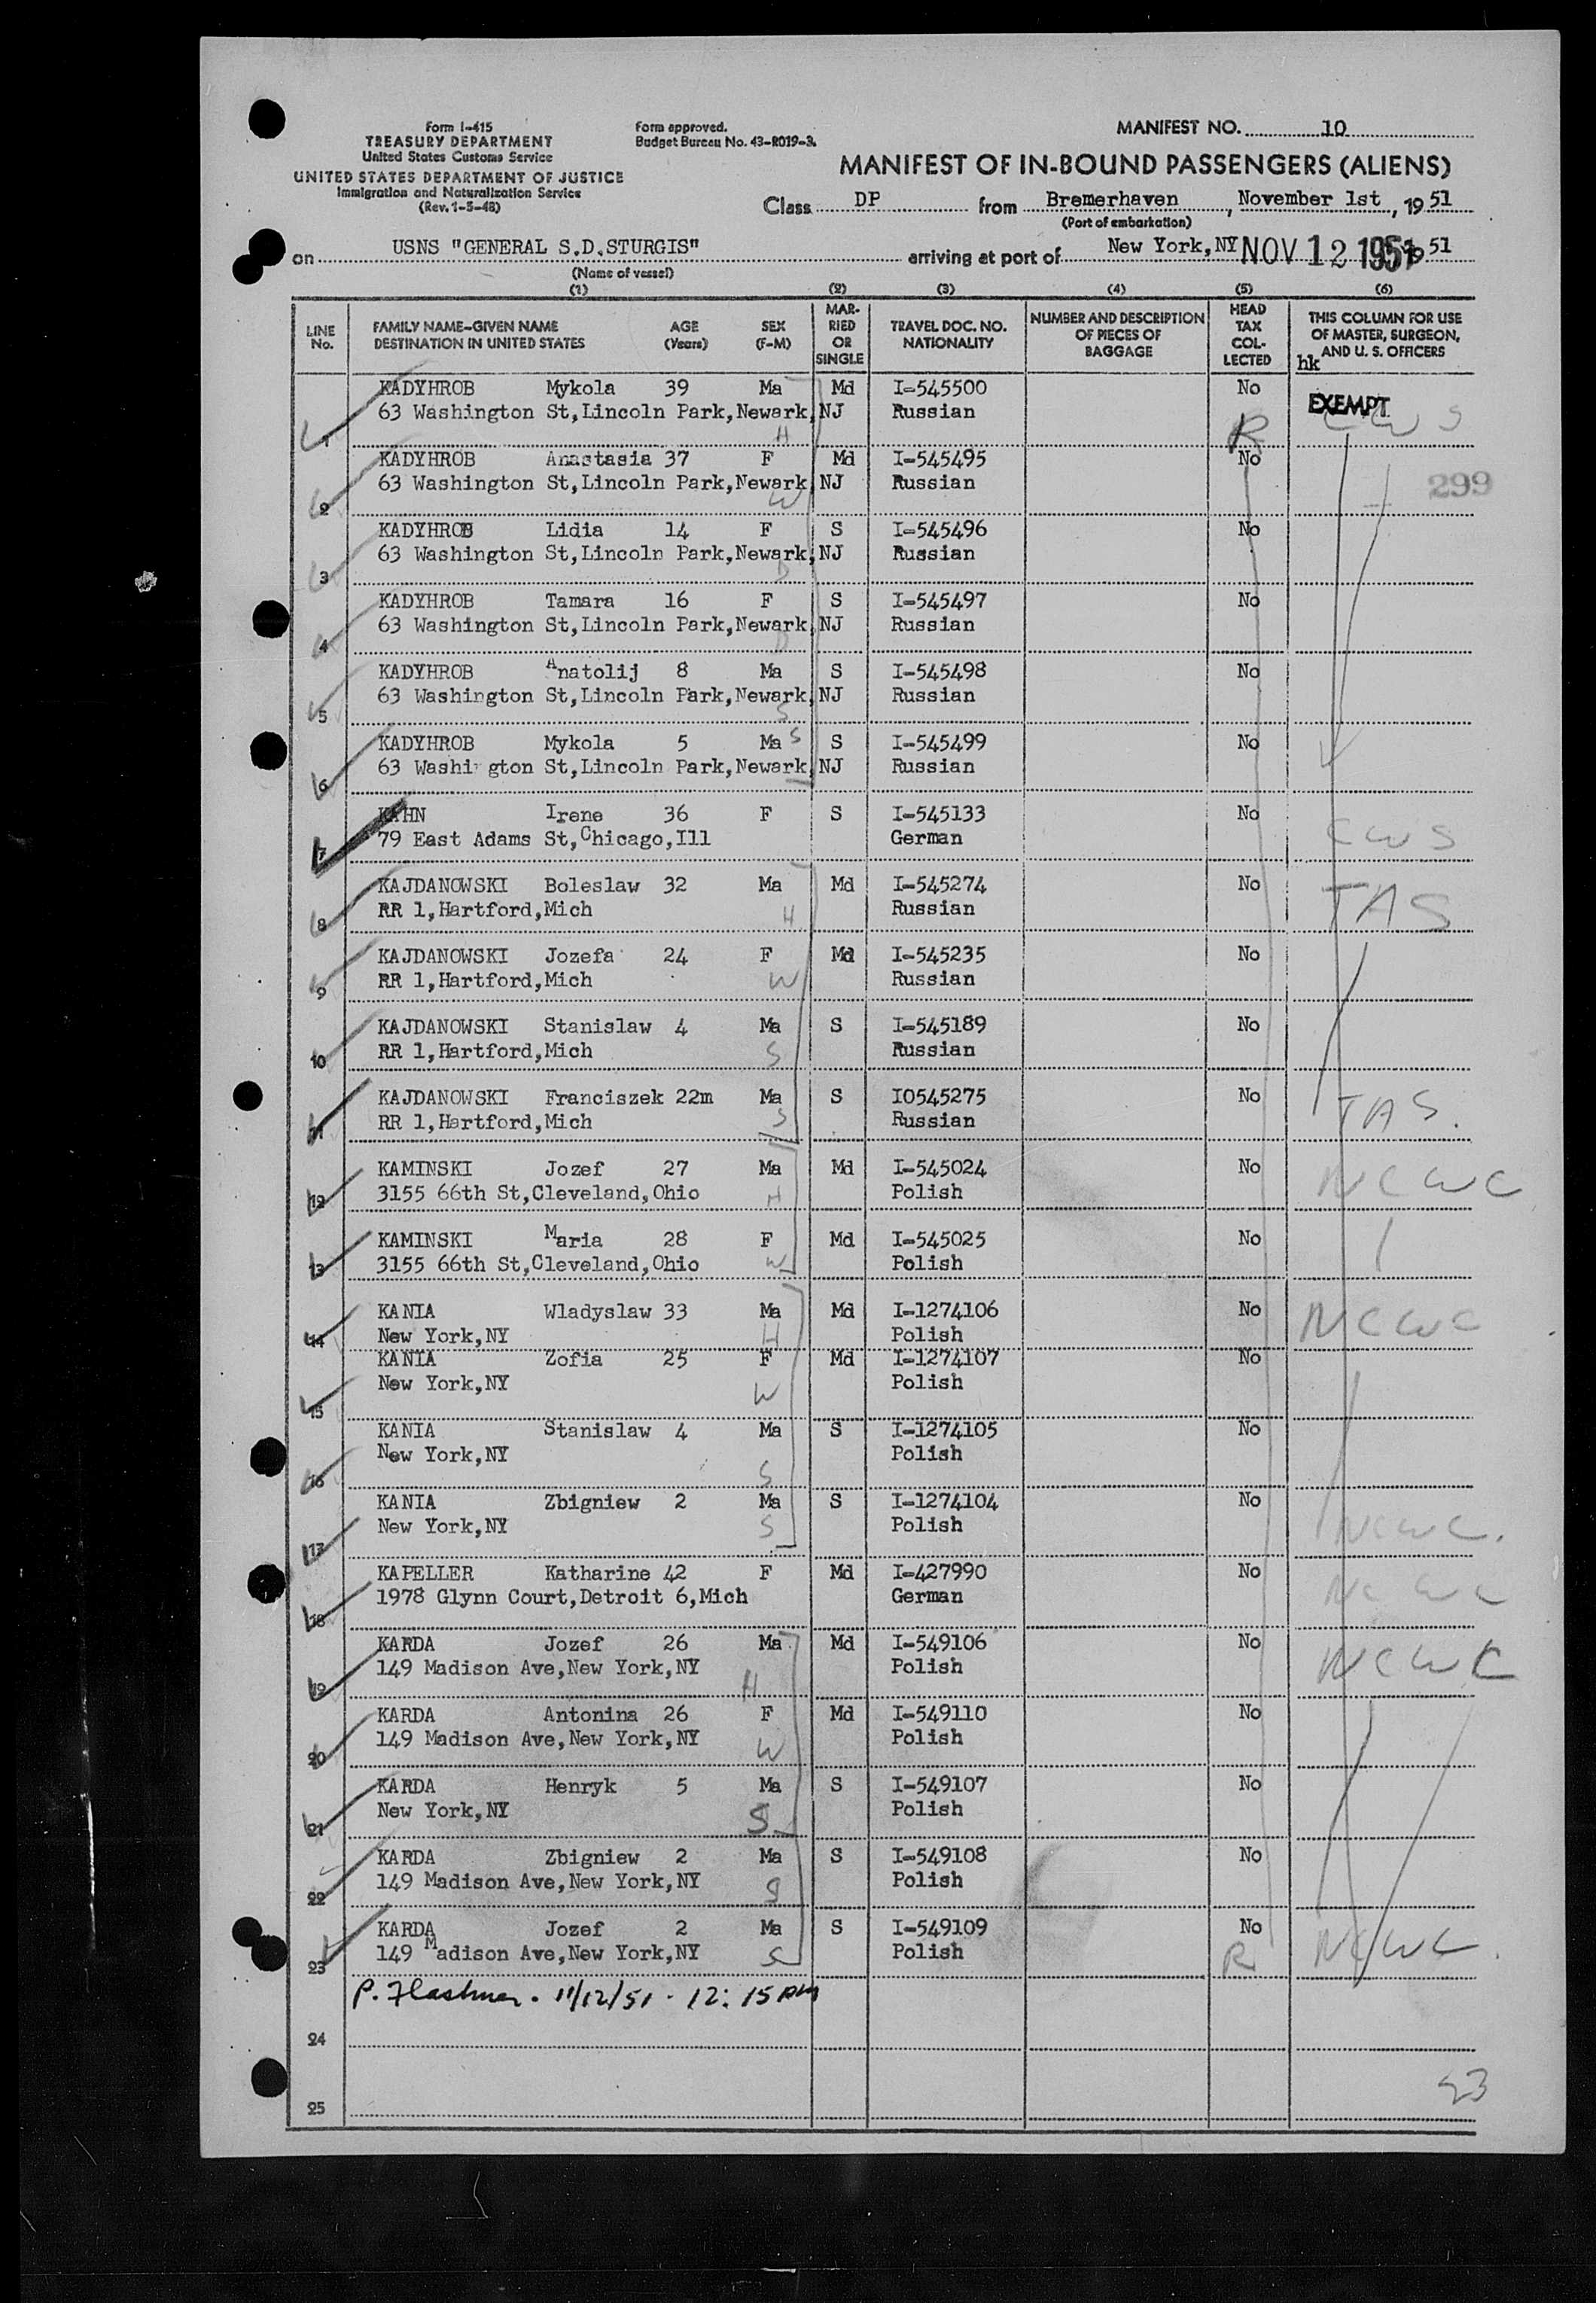 Form I-415
TREASURY DEPARTMENT
United States Customs Service
UNITED STATES DEPARTMENT OF JUSTICE
Immigration and Naturalization Service
(Rev. 1-5-48)
Form approved.
Budget Bureau No. 43-R019-3.
MANIFEST NO. 10
MANIFEST OF IN-BOUND PASSENGERS (ALIENS)
Class DP from Bremerhaven, November 1st, 1951
(Port of embarkation)
on USNS "GENERAL S.D.STURGIS" arriving at port of New York, NY NOV 12 1951 1951
(Name of vessel)
(1) (2) (3) (4) (5) (6)
LINE No. FAMILY NAME-GIVEN NAME DESTINATION IN UNITED STATES AGE (Years) SEX (F-M) MARRIED OR SINGLE TRAVEL DOC. NO. NATIONALITY NUMBER AND DESCRIPTION OF PIECES OF BAGGAGE HEAD TAX COLLECTED THIS COLUMN FOR USE OF MASTER, SURGEON, AND U. S. OFFICERS
hk
1 KADYHROB Mykola 39 Ma Md I-545500 No EXEMPT CWS
63 Washington St,Lincoln Park,Newark,NJ Russian
H R
2 KADYHROB Anastasia 37 F Md I-545495 No
63 Washington St,Lincoln Park,Newark,NJ Russian 299
W
3 KADYHROB Lidia 14 F S I-545496 No
63 Washington St,Lincoln Park,Newark,NJ Russian
D
4 KADYHROB Tamara 16 F S I-545497 No
63 Washington St,Lincoln Park,Newark,NJ Russian
D
5 KADYHROB Anatolij 8 Ma S I-545498 No
63 Washington St,Lincoln Park,Newark,NJ Russian
S
6 KADYHROB Mykola 5 Ma S S I-545499 No
63 Washi gton St,Lincoln Park,Newark,NJ Russian
7 KAHN Irene 36 F S I-545133 No
79 East Adams St,Chicago,Ill German CWS
8 KAJDANOWSKI Boleslaw 32 Ma Md I-545274 No TAS
RR 1,Hartford,Mich H Russian
9 KAJDANOWSKI Jozefa 24 F Md I-545235 No
RR 1,Hartford,Mich W Russian
10 KAJDANOWSKI Stanislaw 4 Ma S I-545189 No
RR 1,Hartford,Mich S Russian
11 KAJDANOWSKI Franciszek 22m Ma S I0545275 No TAS.
RR 1,Hartford,Mich S Russian
12 KAMINSKI Jozef 27 Ma Md I-545024 No NCWC
3155 66th St,Cleveland,Ohio H Polish
13 KAMINSKI Maria 28 F Md I-545025 No
3155 66th St,Cleveland,Ohio W Polish
14 KANIA Wladyslaw 33 Ma Md I-1274106 No NCWC
New York,NY H Polish
15 KANIA Zofia 25 F Md I-1274107 No
New York,NY W Polish
16 KANIA Stanislaw 4 Ma S I-1274105 No
New York,NY S Polish
17 KANIA Zbigniew 2 Ma S I-1274104 No
New York,NY S Polish NCWC.
18 KAPELLER Katharine 42 F Md I-427990 No NCWC
1978 Glynn Court,Detroit 6,Mich German
19 KARDA Jozef 26 Ma Md I-549106 No NCWC
149 Madison Ave,New York,NY H Polish
20 KARDA Antonina 26 F Md I-549110 No
149 Madison Ave,New York,NY W Polish
21 KARDA Henryk 5 Ma S I-549107 No
New York,NY S Polish
22 KARDA Zbigniew 2 Ma S I-549108 No
149 Madison Ave,New York,NY S Polish
23 KARDA Jozef 2 Ma S I-549109 No NCWC.
149 Madison Ave,New York,NY S Polish R
P. 11/12/51 - 12:15 PM
24
23
25